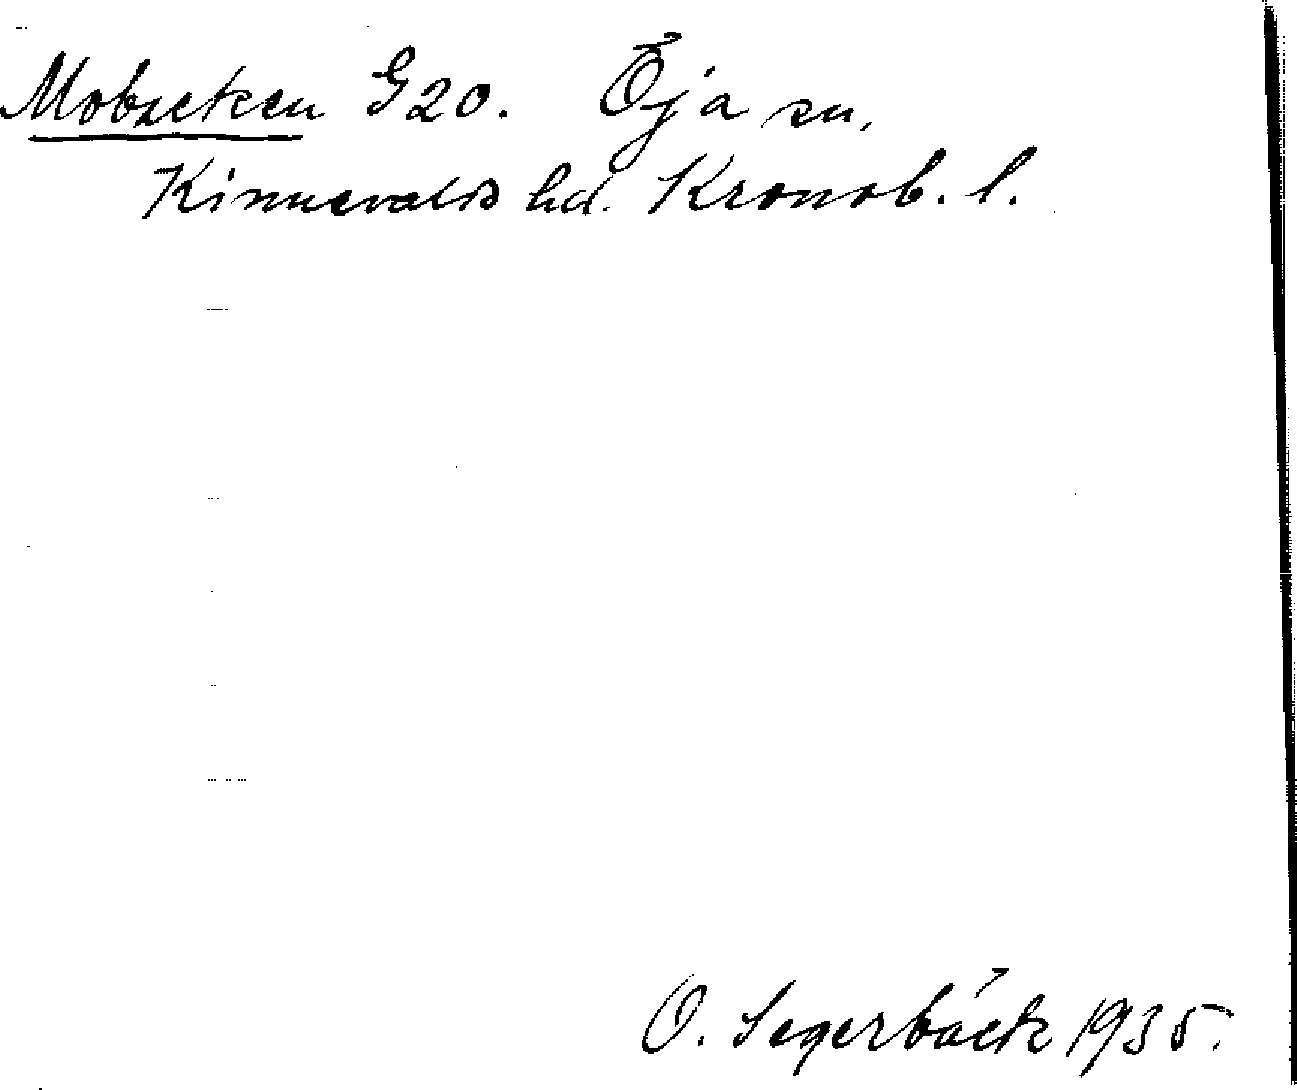 Mobäcken G20. Öja sn.
Kinnevalds hd. Kronob. l.
O. Segerbäck 1935.